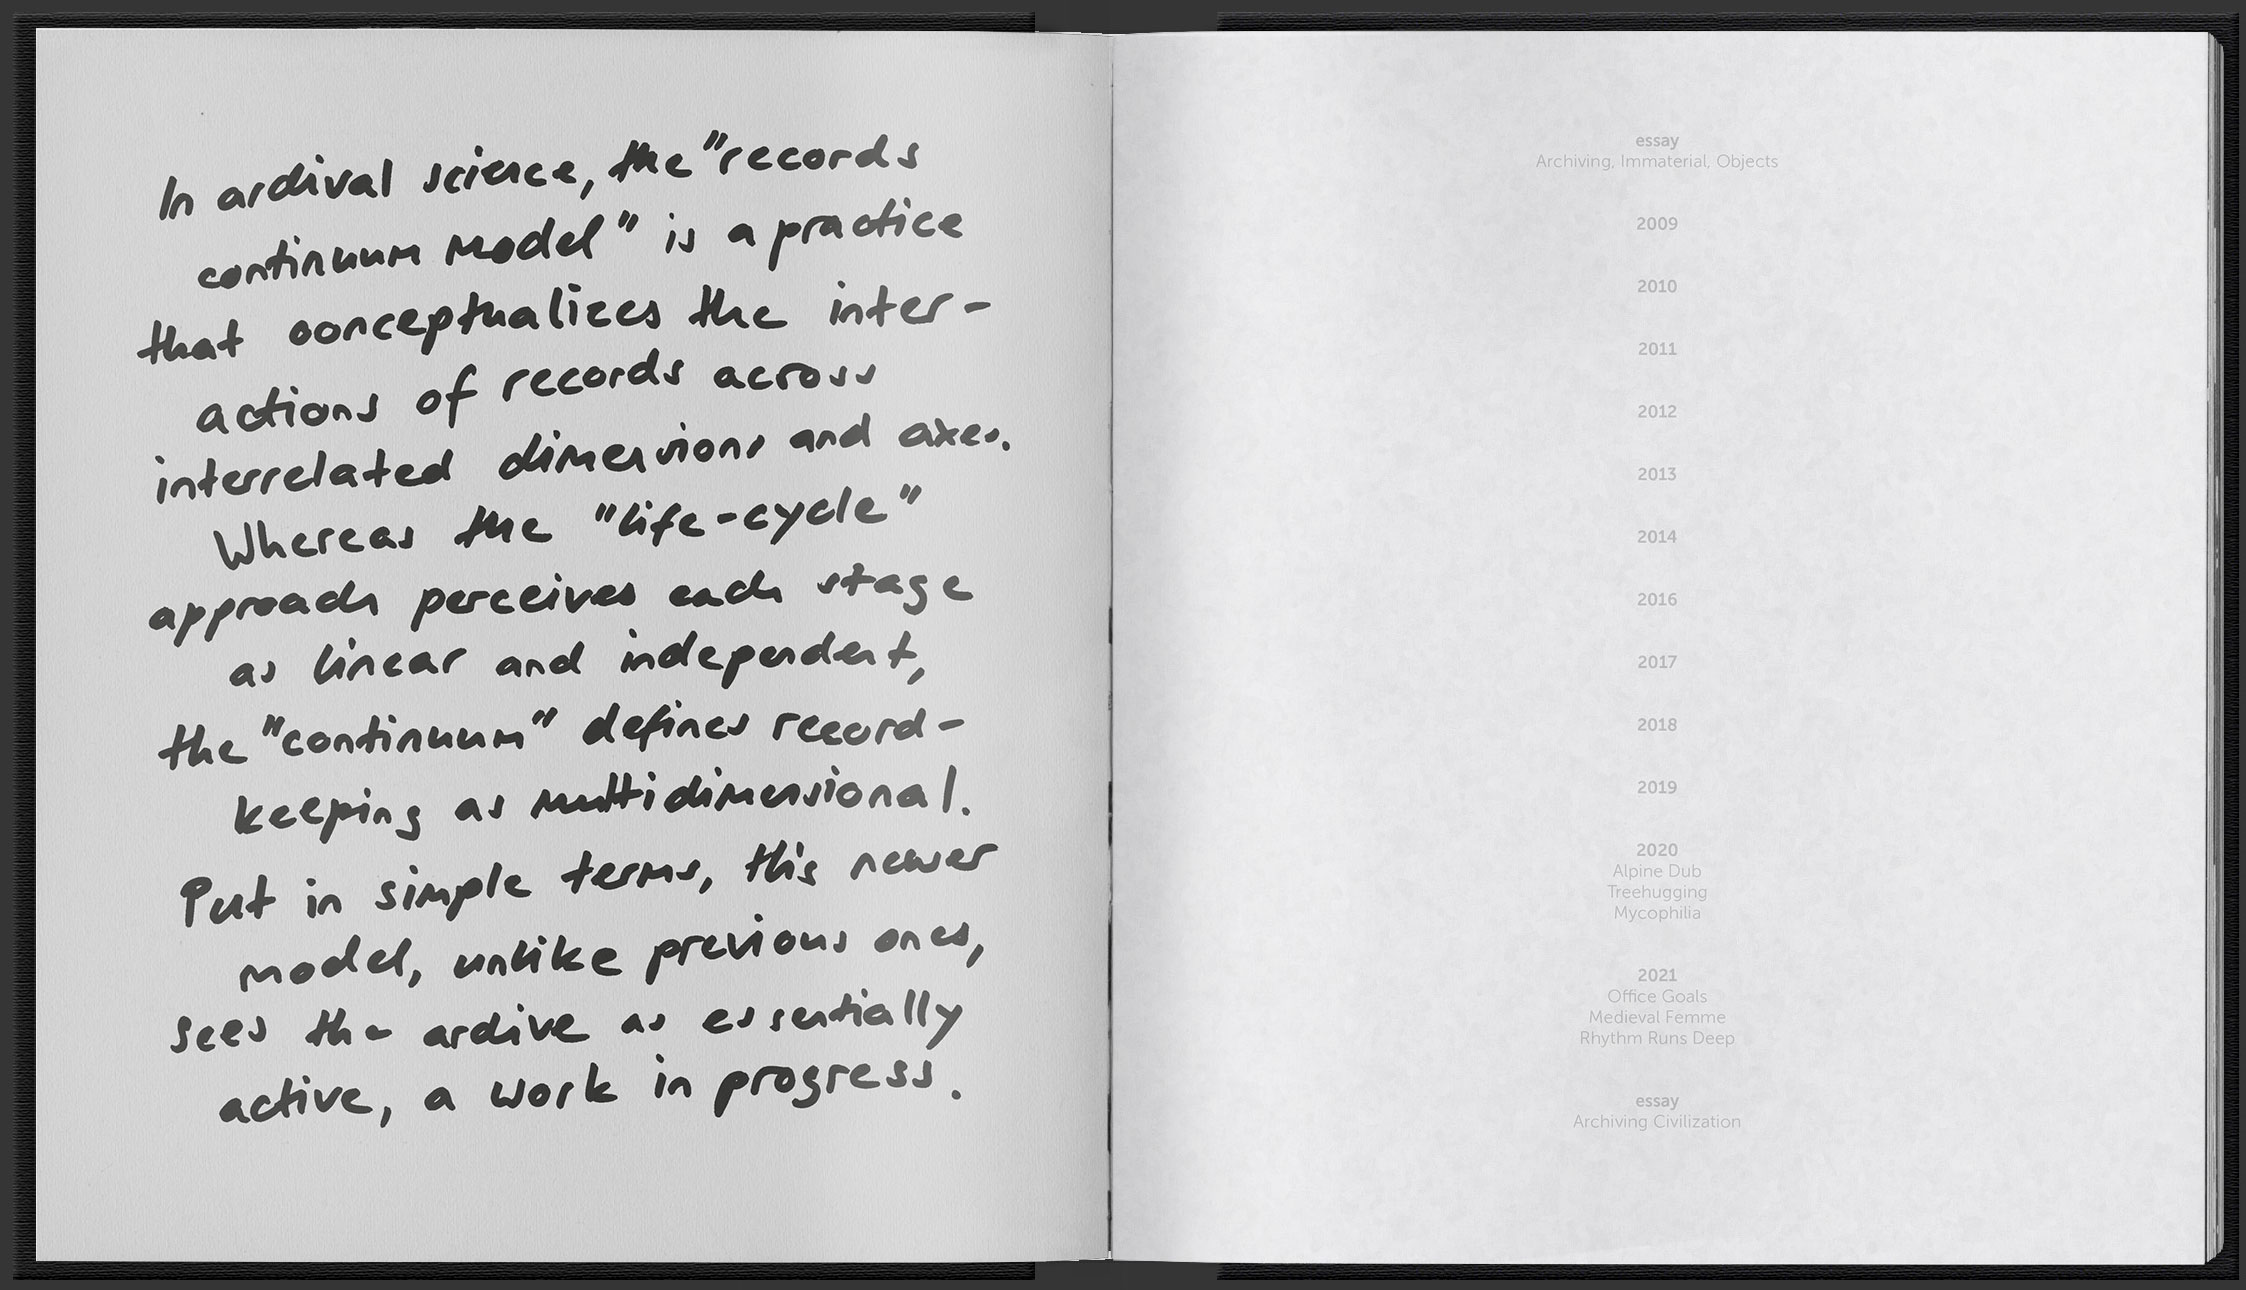 In archival science, the "records
continuum model" is a practice
that conceptualizes the inter-
actions of records across
interrelated dimensions and axes.
Whereas the "life-cycle"
approach perceives each stage
as linear and independent,
the "continuum" defines record-
keeping as multidimensional.
Put in simple terms, this newer
model, unlike previous ones,
sees the archive as essentially
active, a work in progress.
essay
Archiving, Immaterial, Objects
2009
2010
2011
2012
2013
2014
2016
2017
2018
2019
2020
Alpine Dub
Treehugging
Mycophilia
2021
Office Goals
Medieval Femme
Rhythm Runs Deep
essay
Archiving Civilization